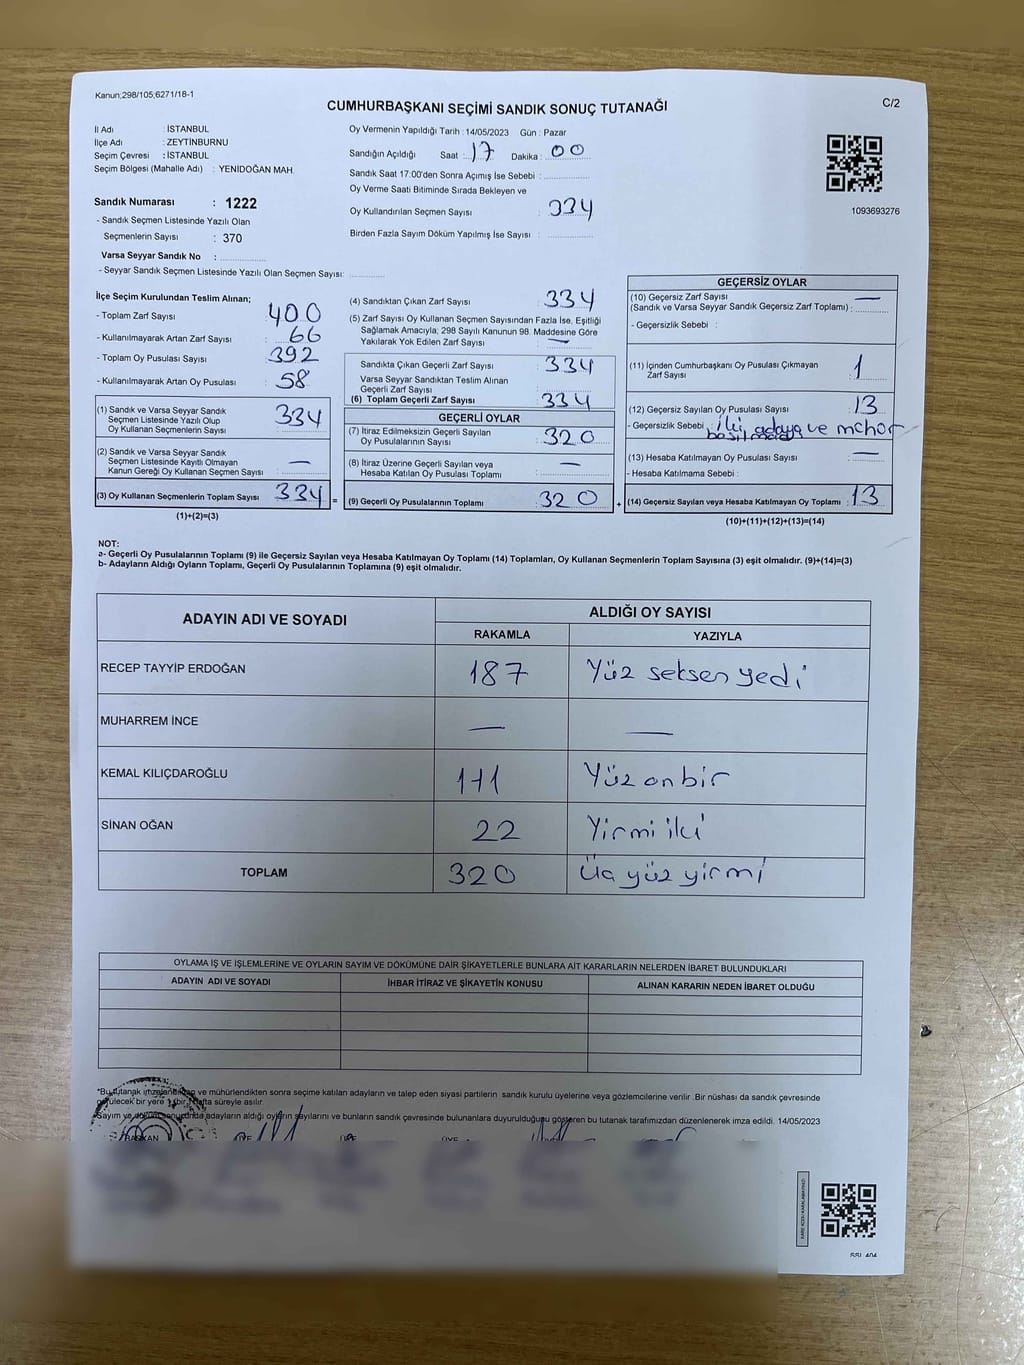 Kanun;298/105,6271/18-1
CUMHURBAŞKANI SEÇİMİ SANDIK SONUÇ TUTANAĞI
C/2
İl Adı : İSTANBUL
İlçe Adı : ZEYTİNBURNU
Seçim Çevresi : İSTANBUL
Seçim Bölgesi (Mahalle Adı) : YENİDOĞAN MAH.
Sandık Numarası : 1222
- Sandık Seçmen Listesinde Yazılı Olan
Seçmenlerin Sayısı : 370
Varsa Seyyar Sandık No :
- Seyyar Sandık Seçmen Listesinde Yazılı Olan Seçmen Sayısı:
Oy Vermenin Yapıldığı Tarih : 14/05/2023 Gün : Pazar
Sandığın Açıldığı Saat : 17 Dakika : 00
Sandık Saat 17:00'den Sonra Açımış İse Sebebi :
Oy Verme Saati Bitiminde Sırada Bekleyen ve
Oy Kullandırılan Seçmen Sayısı : 334
Birden Fazla Sayım Döküm Yapılmış İse Sayısı :
1093693276
İlçe Seçim Kurulundan Teslim Alınan;
- Toplam Zarf Sayısı : 400
- Kullanılmayarak Artan Zarf Sayısı : 66
- Toplam Oy Pusulası Sayısı : 392
- Kullanılmayarak Artan Oy Pusulası : 58
(1) Sandık ve Varsa Seyyar Sandık
Seçmen Listesinde Yazılı Olup
Oy Kullanan Seçmenlerin Sayısı : 334
(2) Sandık ve Varsa Seyyar Sandık
Seçmen Listesinde Kayıtlı Olmayan
Kanun Gereği Oy Kullanan Seçmen Sayısı : —
(3) Oy Kullanan Seçmenlerin Toplam Sayısı : 334
(1)+(2)=(3)
(4) Sandıktan Çıkan Zarf Sayısı : 334
(5) Zarf Sayısı Oy Kullanan Seçmen Sayısından Fazla İse, Eşitliği
Sağlamak Amacıyla; 298 Sayılı Kanunun 98. Maddesine Göre
Yakılarak Yok Edilen Zarf Sayısı : —
Sandıkta Çıkan Geçerli Zarf Sayısı : 334
Varsa Seyyar Sandıktan Teslim Alınan
Geçerli Zarf Sayısı :
(6) Toplam Geçerli Zarf Sayısı : 334
GEÇERLİ OYLAR
(7) İtiraz Edilmeksizin Geçerli Sayılan
Oy Pusulalarının Sayısı : 320
(8) İtiraz Üzerine Geçerli Sayılan veya
Hesaba Katılan Oy Pusulası Toplamı : —
= (9) Geçerli Oy Pusulalarının Toplamı : 320
GEÇERSİZ OYLAR
(10) Geçersiz Zarf Sayısı
(Sandık ve Varsa Seyyar Sandık Geçersiz Zarf Toplamı) : —
- Geçersizlik Sebebi :
(11) İçinden Cumhurbaşkanı Oy Pusulası Çıkmayan
Zarf Sayısı : 1
(12) Geçersiz Sayılan Oy Pusulası Sayısı : 13
- Geçersizlik Sebebi : iki adaya ve mühür
(13) Hesaba Katılmayan Oy Pusulası Sayısı : —
- Hesaba Katılmama Sebebi :
+ (14) Geçersiz Sayılan veya Hesaba Katılmayan Oy Toplamı : 13
(10)+(11)+(12)+(13)=(14)
NOT:
a- Geçerli Oy Pusulalarının Toplamı (9) ile Geçersiz Sayılan veya Hesaba Katılmayan Oy Toplamı (14) Toplamları, Oy Kullanan Seçmenlerin Toplam Sayısına (3) eşit olmalıdır. (9)+(14)=(3)
b- Adayların Aldığı Oyların Toplamı, Geçerli Oy Pusulalarının Toplamına (9) eşit olmalıdır.
ADAYIN ADI VE SOYADI
ALDIĞI OY SAYISI
RAKAMLA YAZIYLA
RECEP TAYYİP ERDOĞAN 187 Yüz seksen yedi
MUHARREM İNCE — —
KEMAL KILIÇDAROĞLU 111 Yüz on bir
SİNAN OĞAN 22 Yirmi iki
TOPLAM 320 Üç yüz yirmi
OYLAMA İŞ VE İŞLEMLERİNE VE OYLARIN SAYIM VE DÖKÜMÜNE DAİR ŞİKAYETLERLE BUNLARA AİT KARARLARIN NELERDEN İBARET BULUNDUKLARI
ADAYIN ADI VE SOYADI İHBAR İTİRAZ VE ŞİKAYETİN KONUSU ALINAN KARARIN NEDEN İBARET OLDUĞU
*Bu tutanak imzalandıktan ve mühürlendikten sonra seçime katılan adayların ve talep eden siyasi partilerin sandık kurulu üyelerine veya gözlemcilerine verilir .Bir nüshası da sandık çevresinde
görülecek bir yere 1 bir hafta süreyle asılır.
Sayım ve döküm sonucunda adayların aldığı oyların sayılarını ve bunların sandık çevresinde bulunanlara duyurulduğunu gösteren bu tutanak tarafımızdan düzenlenerek imza edildi. 14/05/2023
BAŞKAN ÜYE ÜYE ÜYE